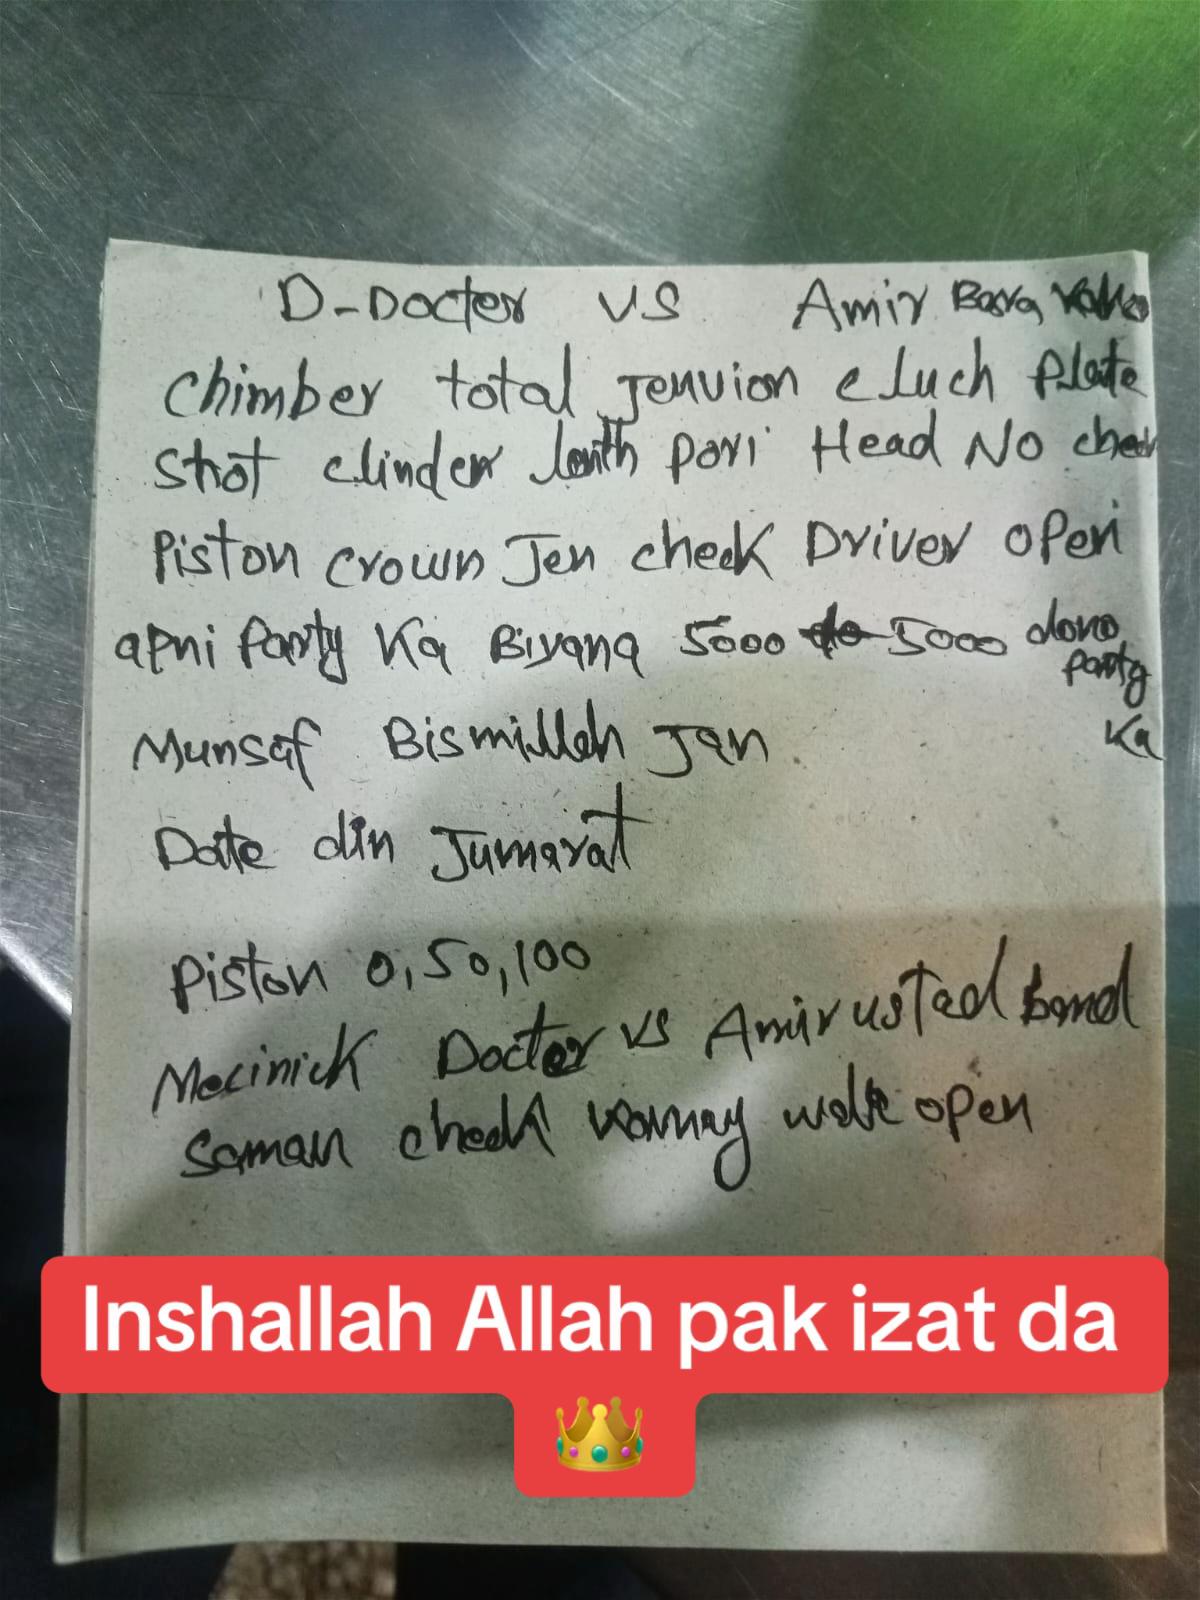 D-Docter VS Amir Bara
Chimber total Jenvion cluch Plate
Shot clinder lenth pori Head No check
Piston crown Jen check Driver open
apni Party Ka Biyana 5000 5000 dono
party
Ka
Munsaf Bismillah Jan
Date din Jumarat
Piston 0,50,100
Mecinick Docter vs Amir ustad band
Saman check karnay wale open
Inshallah Allah pak izat da
👑